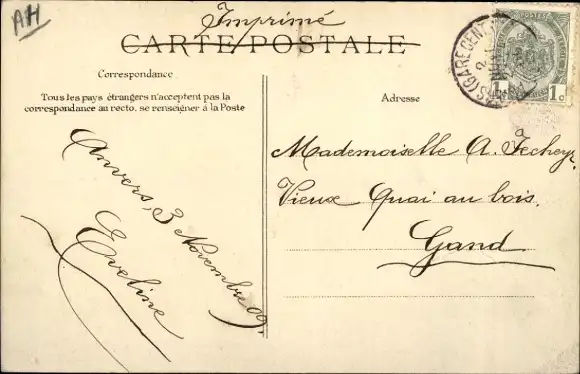 AH
Imprimé
CARTE POSTALE
Correspondance
Tous les pays étrangers n'acceptent pas la
correspondance au recto, se renseigner à la Poste
Anvers, 3 Novembre 09,
Eveline
POSTES
1 1c
(GARE CENT
Adresse
Mademoiselle A. Fecheyr
Vieux Quai au bois.
Gand